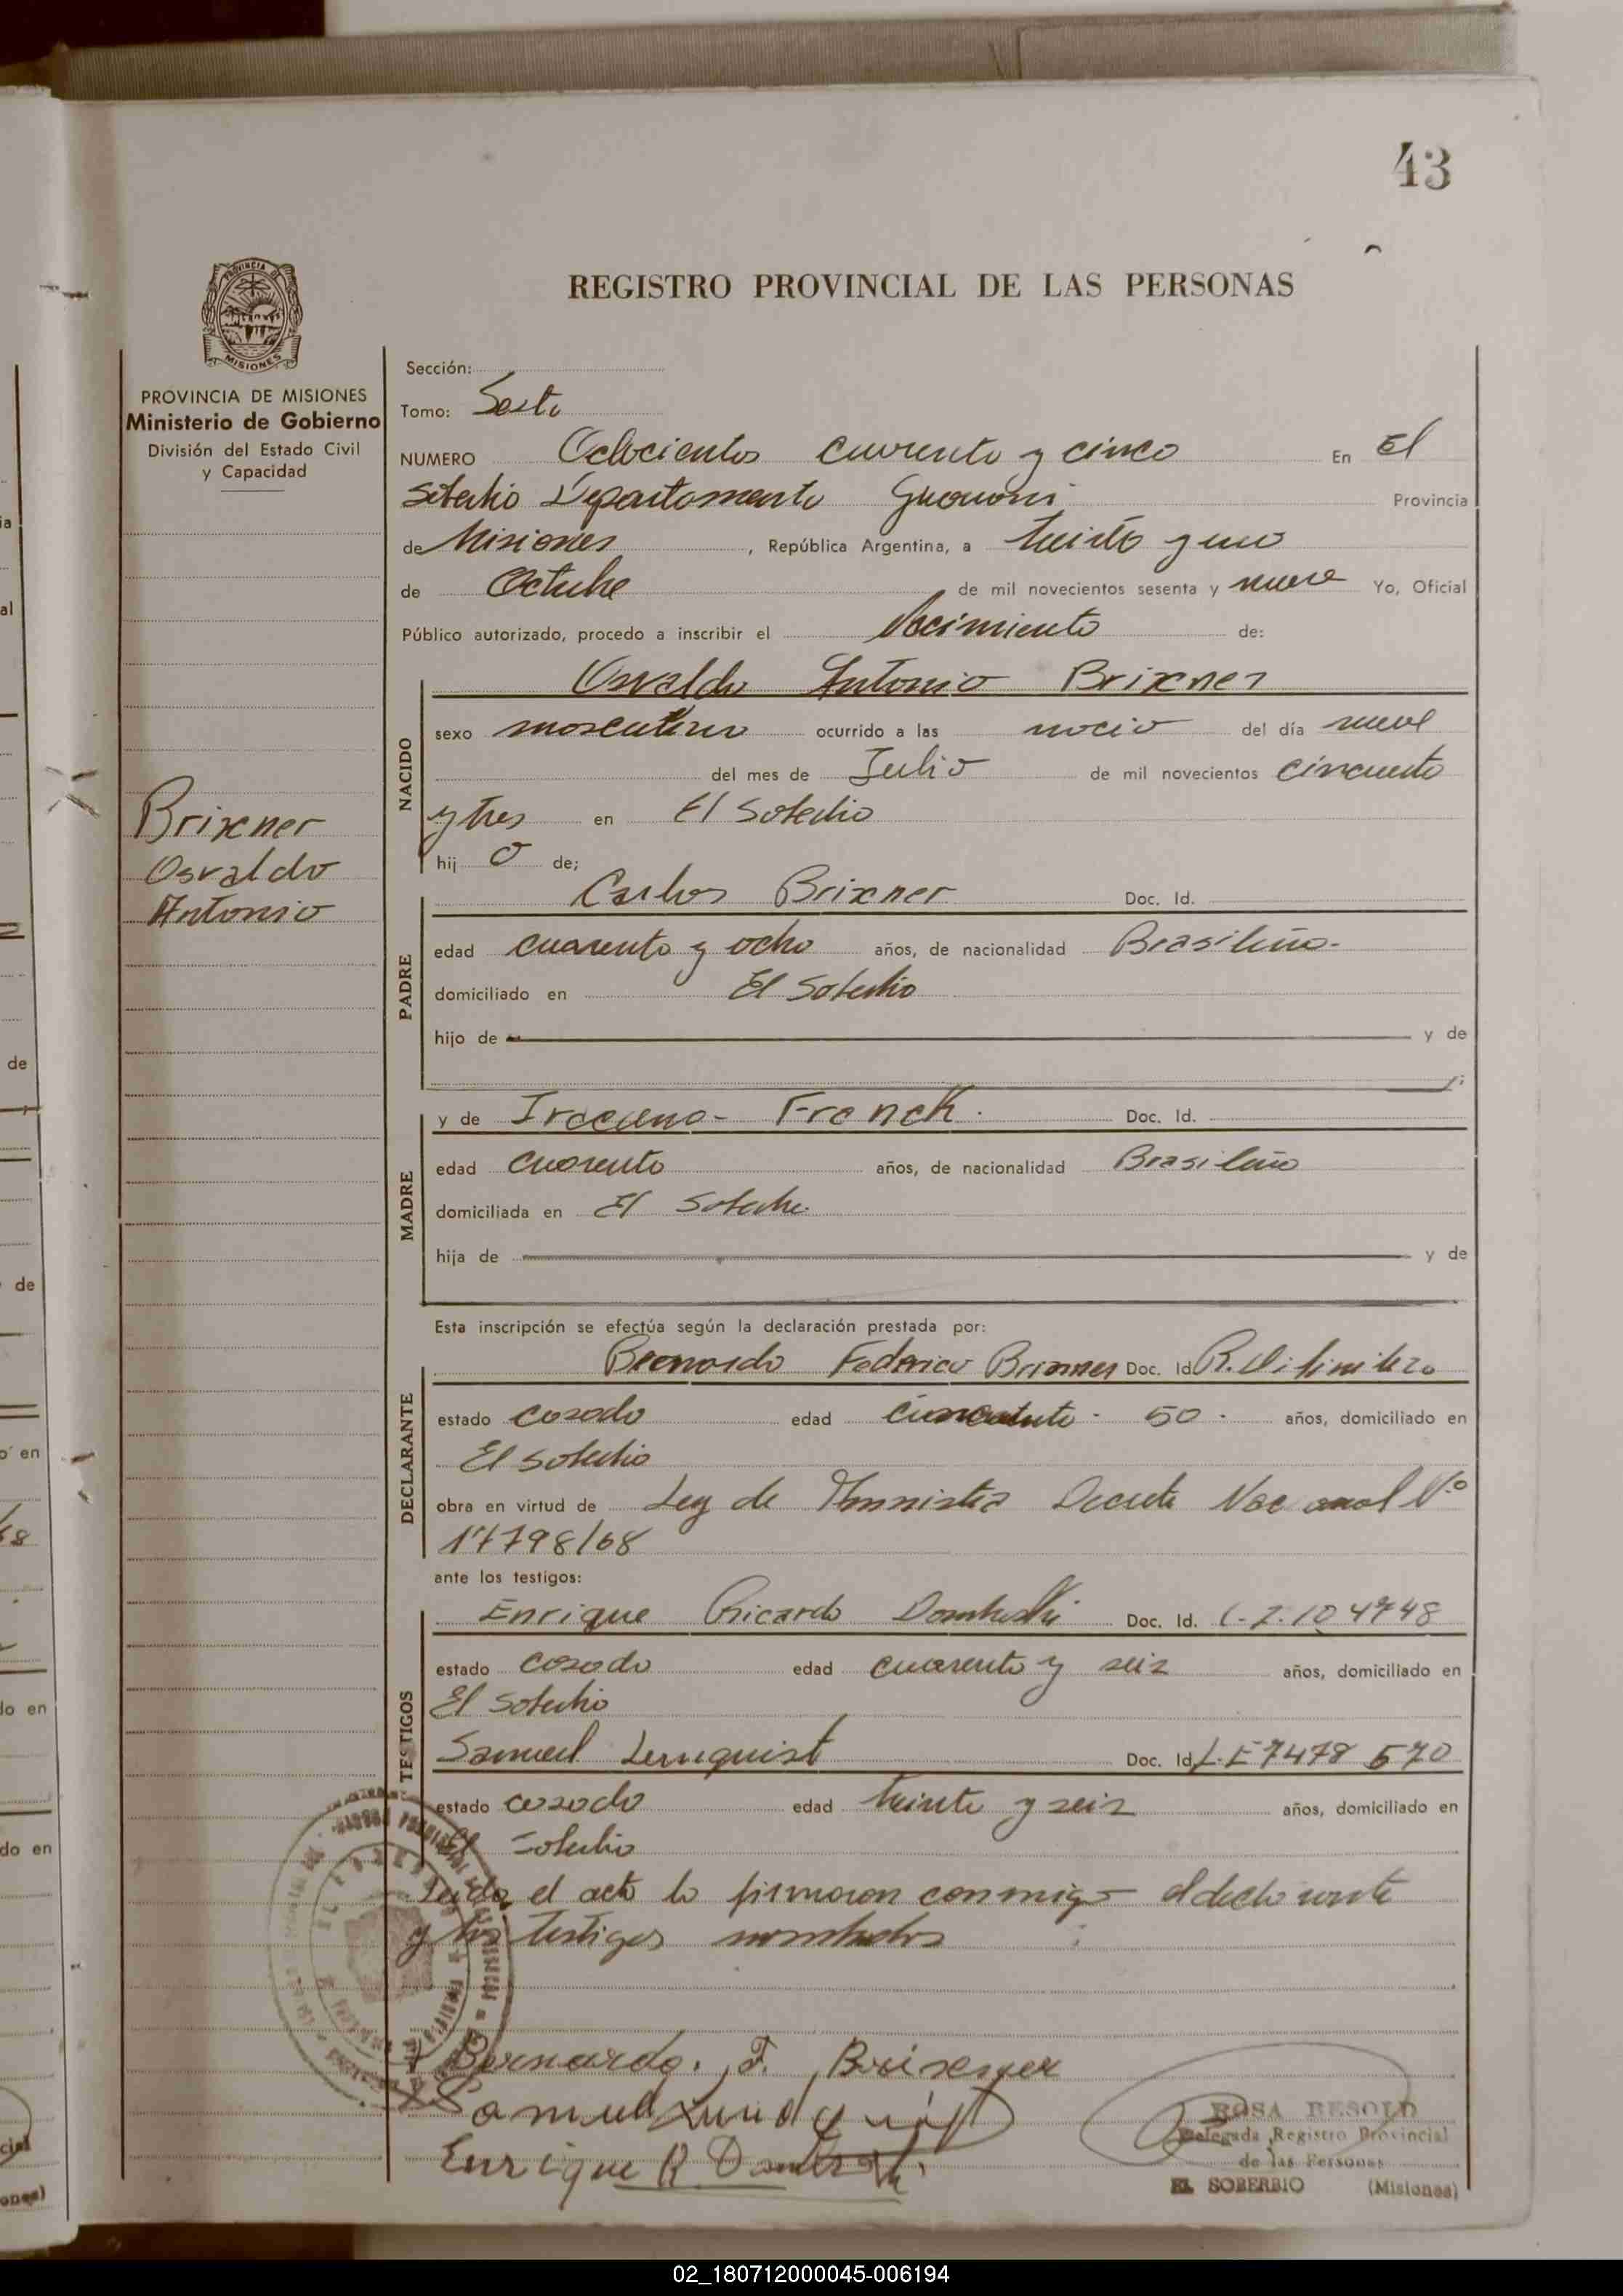 43
REGISTRO PROVINCIAL DE LAS PERSONAS
PROVINCIA DE MISIONES
Ministerio de Gobierno
División del Estado Civil
y Capacidad
Sección:
Tomo: Sexto
NUMERO Ochocientos cuarenta y cinco En El
Soberbio Departamento Guarani Provincia
de Misiones, República Argentina, a treinta y uno
de Octubre de mil novecientos sesenta y nueve Yo, Oficial
Público autorizado, procedo a inscribir el Nacimiento de:
Osvaldo Antonio Brixner
NACIDO
sexo masculino ocurrido a las nacio del día nueve
del mes de Julio de mil novecientos cincuenta
y tres en El Soberbio
hij o de;
Brixner
Osvaldo
Antonio
Carlos Brixner Doc. Id.
PADRE
edad cuarenta y ocho años, de nacionalidad Brasileño-
domiciliado en El Soberbio
hijo de y de
y de Frenck. Doc. Id.
MADRE
edad cuarenta años, de nacionalidad Brasileño
domiciliada en El Soberbio.
hija de y de
Esta inscripción se efectúa según la declaración prestada por:
Bernardo Federico Brixner Doc. Id
DECLARANTE
estado casado edad 50. años, domiciliado en
El Soberbio
obra en virtud de Ley de Amnistia Decreto Nacional N.º
17798/68
ante los testigos:
Enrique Ricardo Doc. Id.
TESTIGOS
estado casado edad cuarenta y seis años, domiciliado en
El Soberbio
Samuel Lunquist Doc. Id L.E 7478 570
estado casado edad treinta y seis años, domiciliado en
El Soberbio
Leida el acta la firmaron conmigo el declarante
y los testigos nombrados
Bernardo. F. Brixner
Samuel Lundquist
Enrique R
ROSA RESOLD
Delegada Registro Provincial
de las Personas
EL SOBERBIO (Misiones)
02_180712000045-006194